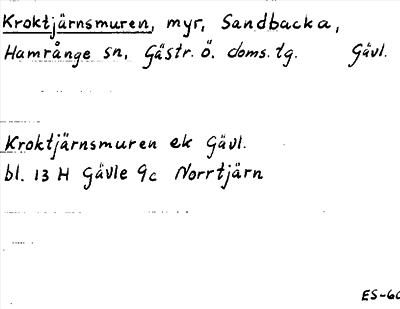 Kroktjärnsmuren, myr, Sandbacka,
Hamrånge sn, Gästr. ö. doms. tg. Gävl.
Kroktjärnsmuren ek Gävl.
bl. 13 H Gävle 9c Norrtjärn
ES-60